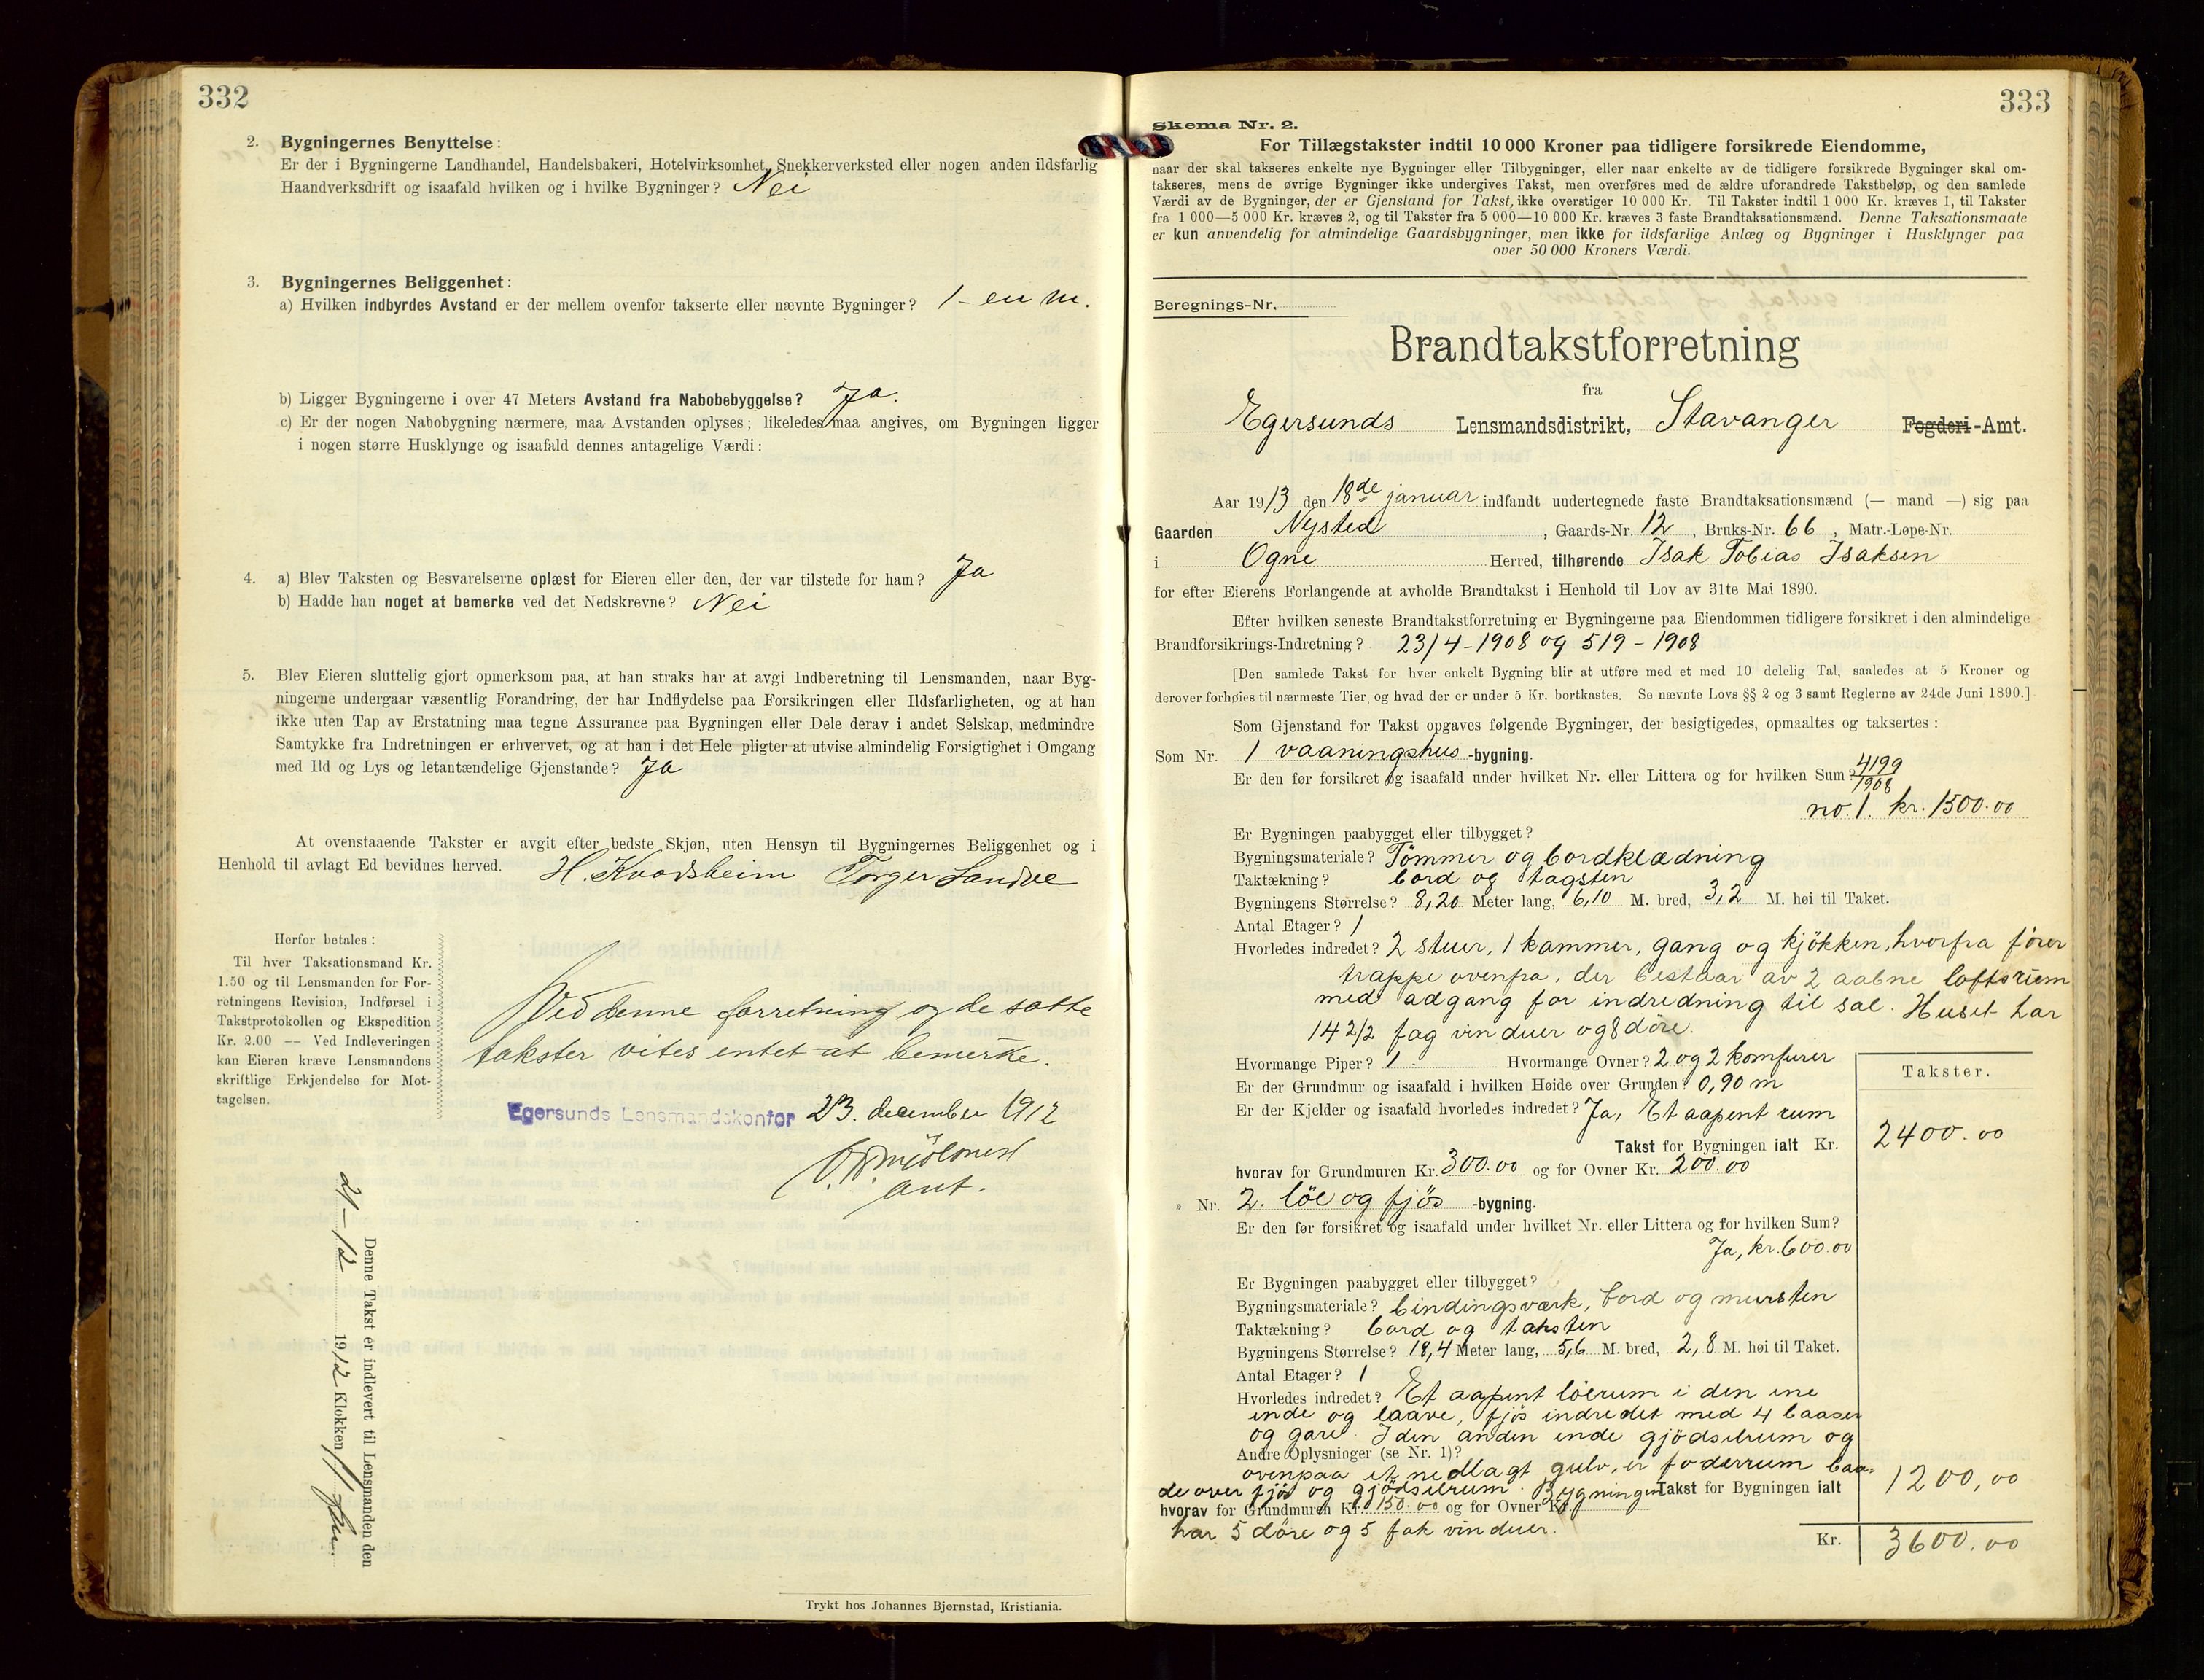 332
2. Bygningernes Benyttelse:
Er der i Bygningerne Landhandel, Handelsbakeri, Hotelvirksomhet, Snekkerverksted eller nogen anden ildsfarlig
Haandverksdrift og isaafald hvilken og i hvilke Bygninger? Nei
3. Bygningernes Beliggenhet:
a) Hvilken indbyrdes Avstand er der mellem ovenfor takserte eller nævnte Bygninger? 1 - en m.
b) Ligger Bygningerne i over 47 Meters Avstand fra Nabobebyggelse? Ja.
c) Er der nogen Nabobygning nærmere, maa Avstanden oplyses; likeledes maa angives, om Bygningen ligger
i nogen større Husklynge og isaafald dennes antagelige Værdi:
4. a) Blev Taksten og Besvarelserne oplæst for Eieren eller den, der var tilstede for ham? Ja
b) Hadde han noget at bemerke ved det Nedskrevne? Nei
5. Blev Eieren sluttelig gjort opmerksom paa, at han straks har at avgi Indberetning til Lensmanden, naar Byg-
ningerne undergaar væsentlig Forandring, der har Indflydelse paa Forsikringen eller Ildsfarligheten, og at han
ikke uten Tap av Erstatning maa tegne Assurance paa Bygningen eller Dele derav i andet Selskap, medmindre
Samtykke fra Indretningen er erhvervet, og at han i det Hele pligter at utvise almindelig Forsigtighet i Omgang
med Ild og Lys og letantændelige Gjenstande? Ja
At ovenstaaende Takster er avgit efter bedste Skjøn, uten Hensyn til Bygningernes Beliggenhet og i
Henhold til avlagt Ed bevidnes herved. H. Kvadsheim Torger Sandve
Herfor betales:
Til hver Taksationsmand Kr.
1.50 og til Lensmanden for For-
retningens Revision, Indførsel i
Takstprotokollen og Ekspedition
Kr. 2.00 — Ved Indleveringen
kan Eieren kræve Lensmandens
skriftlige Erkjendelse for Mot-
tagelsen.
Ved denne forretning og de satte
takster vites entet at bemerke.
Egersunds Lensmandskontor 23. december 1912
aut.
Denne Takst er indlevert til Lensmanden den
21-12 1912 Klokken 11 fm.
Trykt hos Johannes Bjørnstad, Kristiania.
333
Skema Nr. 2.
For Tillægstakster indtil 10 000 Kroner paa tidligere forsikrede Eiendomme,
naar der skal takseres enkelte nye Bygninger eller Tilbygninger, eller naar enkelte av de tidligere forsikrede Bygninger skal om-
takseres, mens de øvrige Bygninger ikke undergives Takst, men overføres med de ældre uforandrede Takstbeløp, og den samlede
Værdi av de Bygninger, der er Gjenstand for Takst, ikke overstiger 10 000 Kr. Til Takster indtil 1 000 Kr. kræves 1, til Takster
fra 1 000—5 000 Kr. kræves 2, og til Takster fra 5 000—10 000 Kr. kræves 3 faste Brandtaksationsmænd. Denne Taksationsmaate
er kun anvendelig for almindelige Gaardsbygninger, men ikke for ildsfarlige Anlæg og Bygninger i Husklynger paa
over 50 000 Kroners Værdi.
Beregnings-Nr.
Brandtakstforretning
fra
Egersunds Lensmandsdistrikt, Stavanger Fogderi-Amt.
Aar 1913 den 18de januar indfandt undertegnede faste Brandtaksationsmænd (— mand —) sig paa
Gaarden Nysted, Gaards-Nr. 12, Bruks-Nr. 66, Matr.-Løpe-Nr.
i Ogne Herred, tilhørende Isak Tobias Isaksen
for efter Eierens Forlangende at avholde Brandtakst i Henhold til Lov av 31te Mai 1890.
Efter hvilken seneste Brandtakstforretning er Bygningerne paa Eiendommen tidligere forsikret i den almindelige
Brandforsikrings-Indretning? 23/4-1908 og 5/9-1908
[Den samlede Takst for hver enkelt Bygning blir at utføre med et med 10 delelig Tal, saaledes at 5 Kroner og
derover forhøies til nærmeste Tier, og hvad der er under 5 Kr. bortkastes. Se nævnte Lovs §§ 2 og 3 samt Reglerne av 24de Juni 1890.]
Som Gjenstand for Takst opgaves følgende Bygninger, der besigtigedes, opmaaltes og taksertes:
Som Nr. 1 vaaningshus -bygning.
Er den før forsikret og isaafald under hvilket Nr. eller Littera og for hvilken Sum? 4199/1908
no. 1. kr. 1500.00
Er Bygningen paabygget eller tilbygget?
Bygningsmateriale? Tömmer og bordklædning
Taktækning? bord og tagsten
Bygningens Størrelse? 8,20 Meter lang, 6,10 M. bred, 3,2 M. høi til Taket.
Antal Etager? 1
Hvorledes indredet? 2 stuer, 1 kammer, gang og kjökken, hvorfra förer
trappe ovenpa, der bestaar av 2 aabne loftsrum
med adgang for indredning til sal. Huset har
14 2/2 fag vinduer og 8 döre.
Hvormange Piper? 1. Hvormange Ovner? 2 og 2 komfurer
Er der Grundmur og isaafald i hvilken Høide over Grunden? 0,90 m
Er der Kjelder og isaafald hvorledes indredet? Ja, Et aapent rum
Takster.
Takst for Bygningen ialt Kr. 2400.00
hvorav for Grundmuren Kr. 300.00 og for Ovner Kr. 200.00
» Nr. 2. löe og fjös -bygning.
Er den før forsikret og isaafald under hvilket Nr. eller Littera og for hvilken Sum?
Ja, kr. 600.00
Er Bygningen paabygget eller tilbygget?
Bygningsmateriale? bindingsværk, bord og mursten
Taktækning? bord og taksten
Bygningens Størrelse? 18,4 Meter lang, 5,6 M. bred, 2,8 M. høi til Taket.
Antal Etager? 1
Hvorledes indredet? Et aapent löerum i den ene
ende og laave, fjös indredet med 4 baaser
og gare. I den anden ende gjödselrum og
Andre Oplysninger (se Nr. 1)?
ovenpaa et nedlagt gulv, er foderrum baa-
de over fjös og gjödselrum. Bygningen Takst for Bygningen ialt 1200,00
hvorav for Grundmuren Kr. 150.00 og for Ovner Kr.
har 5 döre og 5 fak vinduer.
Kr. 3600.00